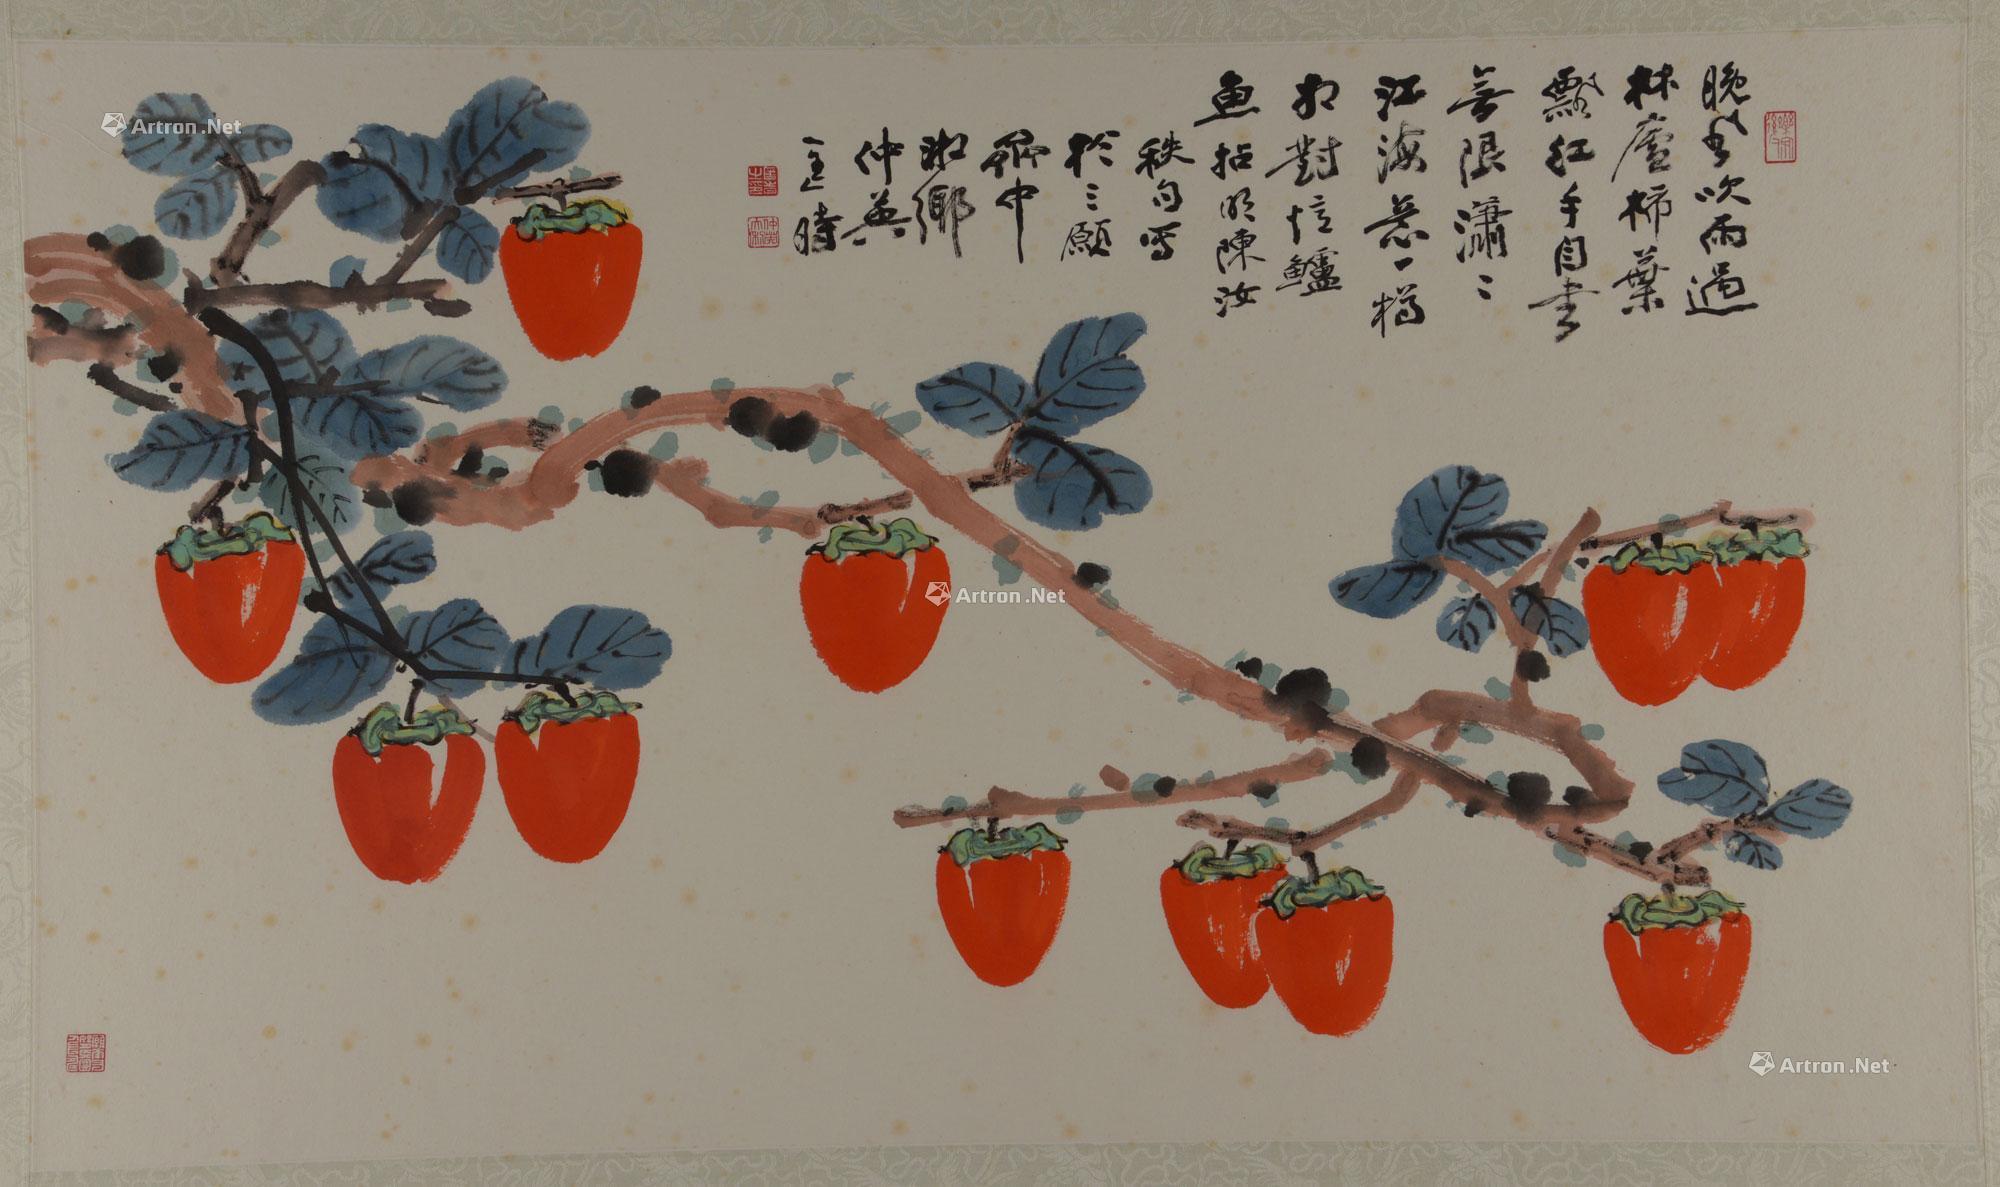 晚風吹雨過
林廬柿葉
飄紅手自書
無限瀟〻
江海意一樽
相對憶鱸
魚拈明陳汝
秩句寫
於三願
齋中
湘鄉
仲英
匡時
Artron.Net
Artron.Net
Artron.Net